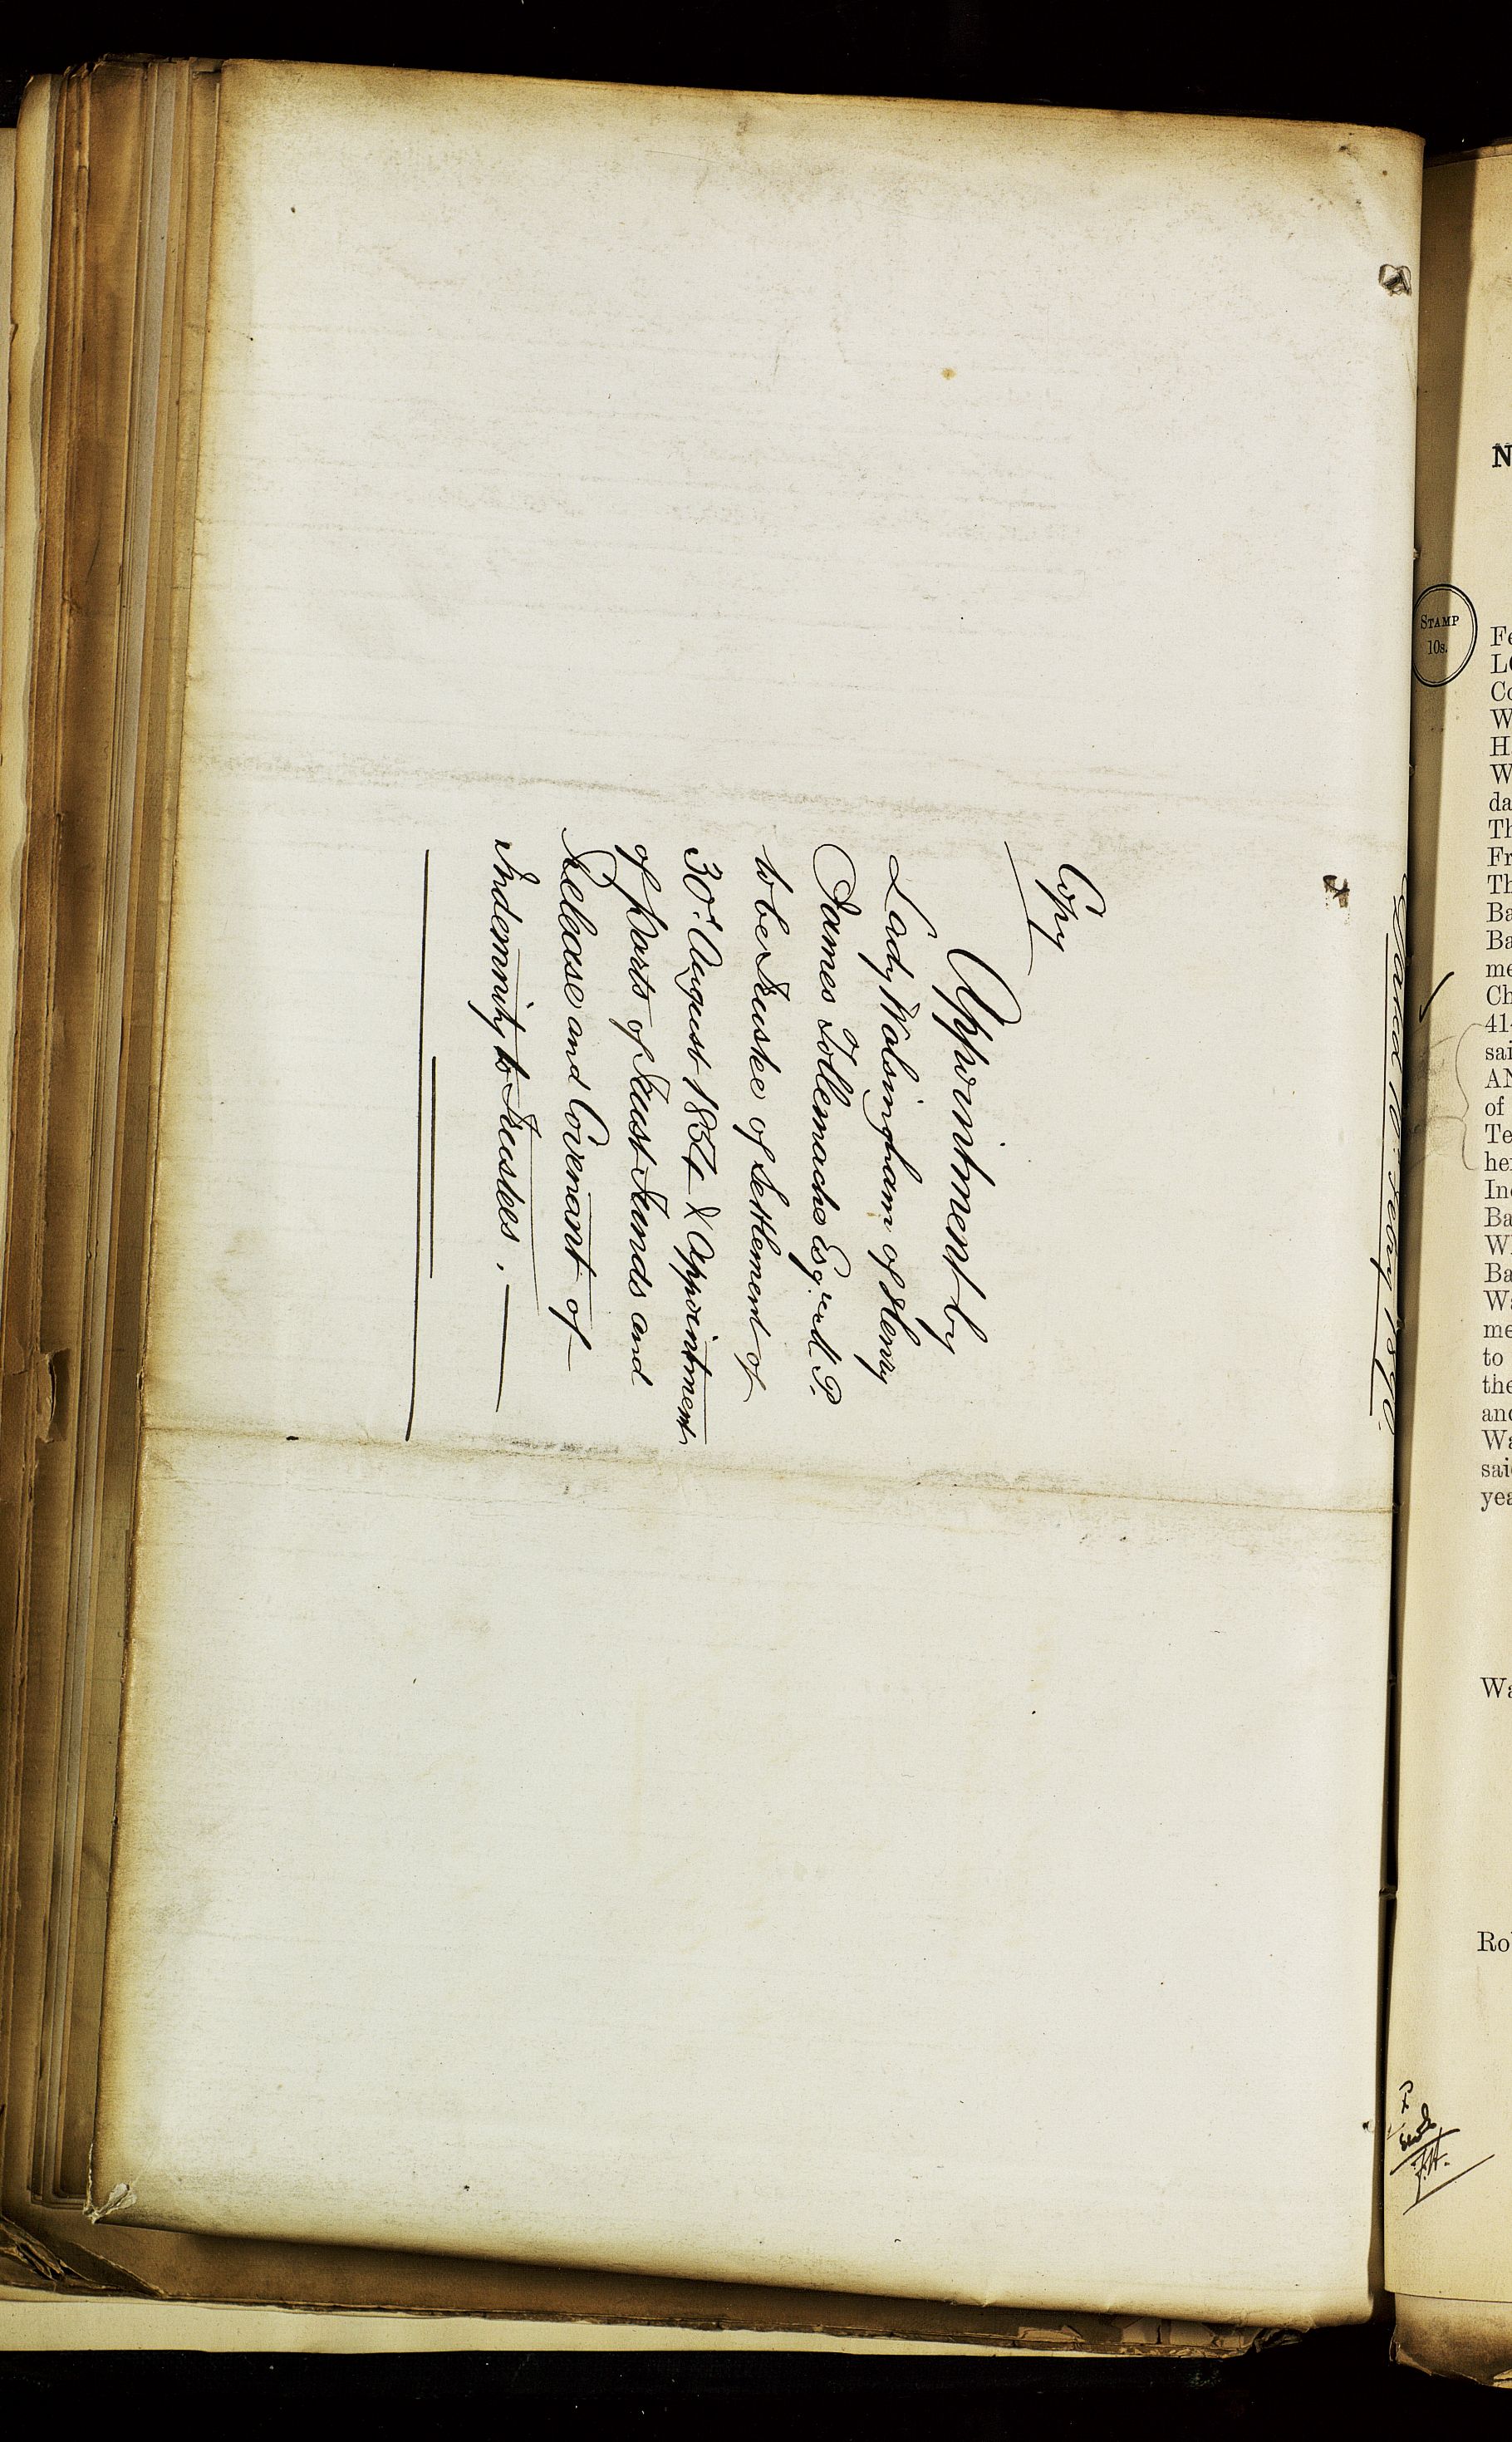 Dated 10th July 1890.
Copy
Appointment by
Lady Walsingham of Henry
James Tollemache Esqre M.P.
to be Trustee of Settlement of
30th August 1834 & Appointment
of parts of Trust Funds and
Release and Covenant of
Indemnity to Trustees.
STAMP
10s.
N
Fe
LO
Co
W
H
W
da
Th
Fr
Th
Ba
Ba
me
Ch
41
sai
AN
of
Te
her
Inc
Ba
W
Ba
Wa
me
to
the
and
Wa
said
yea
Wa
Ro